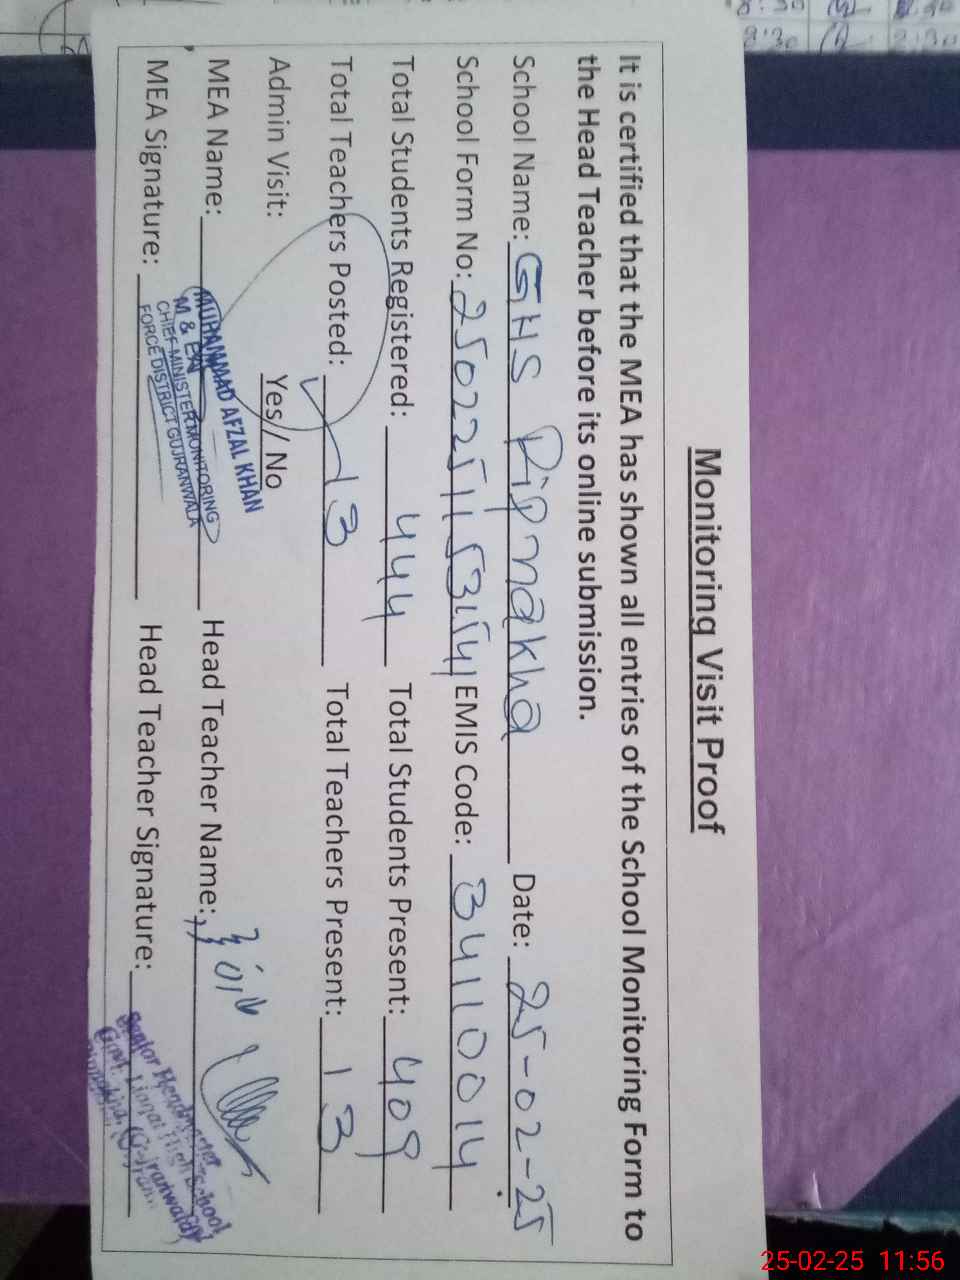 Monitoring Visit Proof
It is certified that the MEA has shown all entries of the School Monitoring Form to
the Head Teacher before its online submission.
School Name: GHS Pipnakha Date: 25-02-25
School Form No: EMIS Code: 34110014
Total Students Registered: 444 Total Students Present: 409
Total Teachers Posted: 13 Total Teachers Present: 13
Admin Visit: Yes // No
MEA Name: Head Teacher Name:
MEA Signature: Head Teacher Signature:
MUHAMMAD AFZAL KHAN
M & EA
CHIEF MINISTER MONITORING
FORCE DISTRICT GUJRANWALA
Senior Headmaster
Govt. High School
25-02-25 11:56